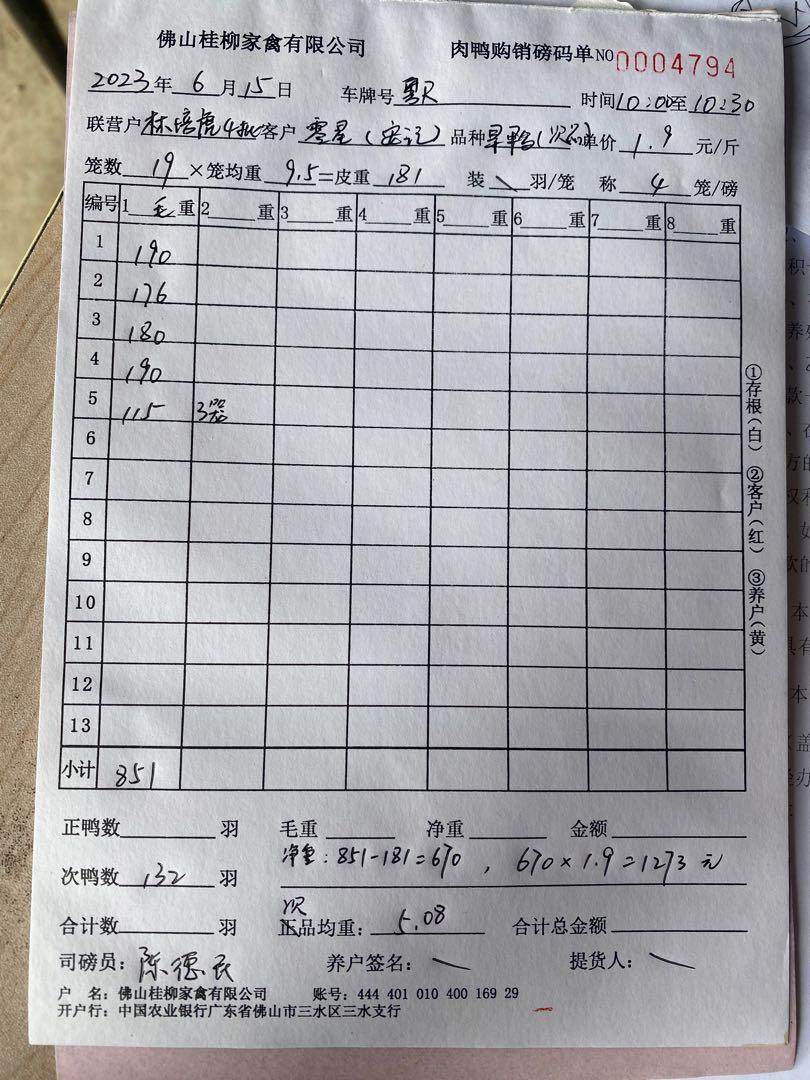 佛山桂柳家禽有限公司 肉鸭购销磅码单 NO 0004794
2023年 6 月 15 日 车牌号 时间 10:00至 10:30
联营户 林培虎4批 客户 零星( ) 品种 单价 1.9 元/斤
笼数 19 ×笼均重 9.5 =皮重 181 装 \ 羽/笼 称 4 笼/磅
编号 1 毛 重 2 重 3 重 4 重 5 重 6 重 7 重 8 重
1 190
2 176
3 180
4 190
5 115 3笼
6
7
8
9
10
11
12
13
小计 851
①存根(白) ②客户(红) ③养户(黄)
正鸭数 羽 毛重 净重 金额
次鸭数 132 羽 净重:851-181=670 , 670×1.9=1273 元
合计数 羽 次品均重: 5.08 合计总金额
司磅员: 陈德民 养户签名: \ 提货人: \
户 名:佛山桂柳家禽有限公司 账号:444 401 010 400 169 29
开户行:中国农业银行广东省佛山市三水区三水支行